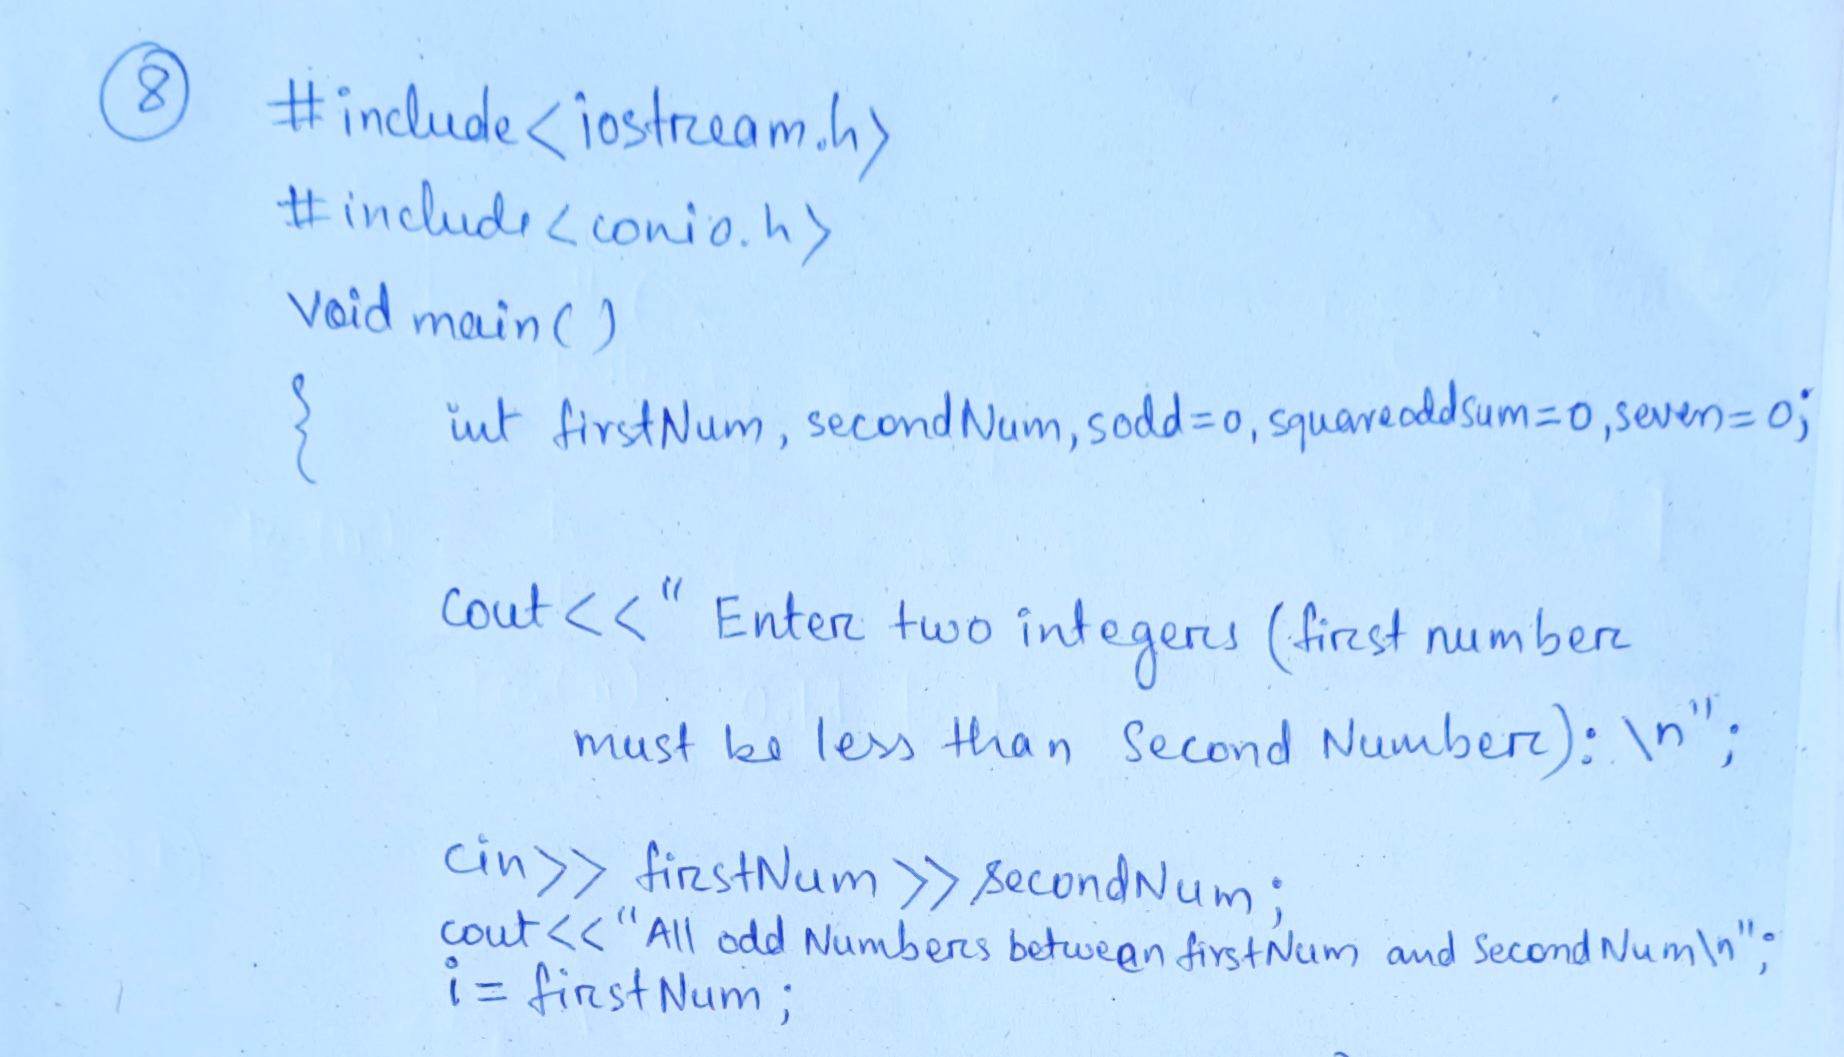 8 #include<iostream.h>
#include<conio.h>
void main()
{ int firstNum, secondNum, sodd=0, squareoddsum=0, seven=0;
cout<<" Enter two integers (first number
must be less than Second Number): \n";
cin>> firstNum >> secondNum;
cout<<"All odd Numbers between firstNum and SecondNum\n";
i = firstNum;